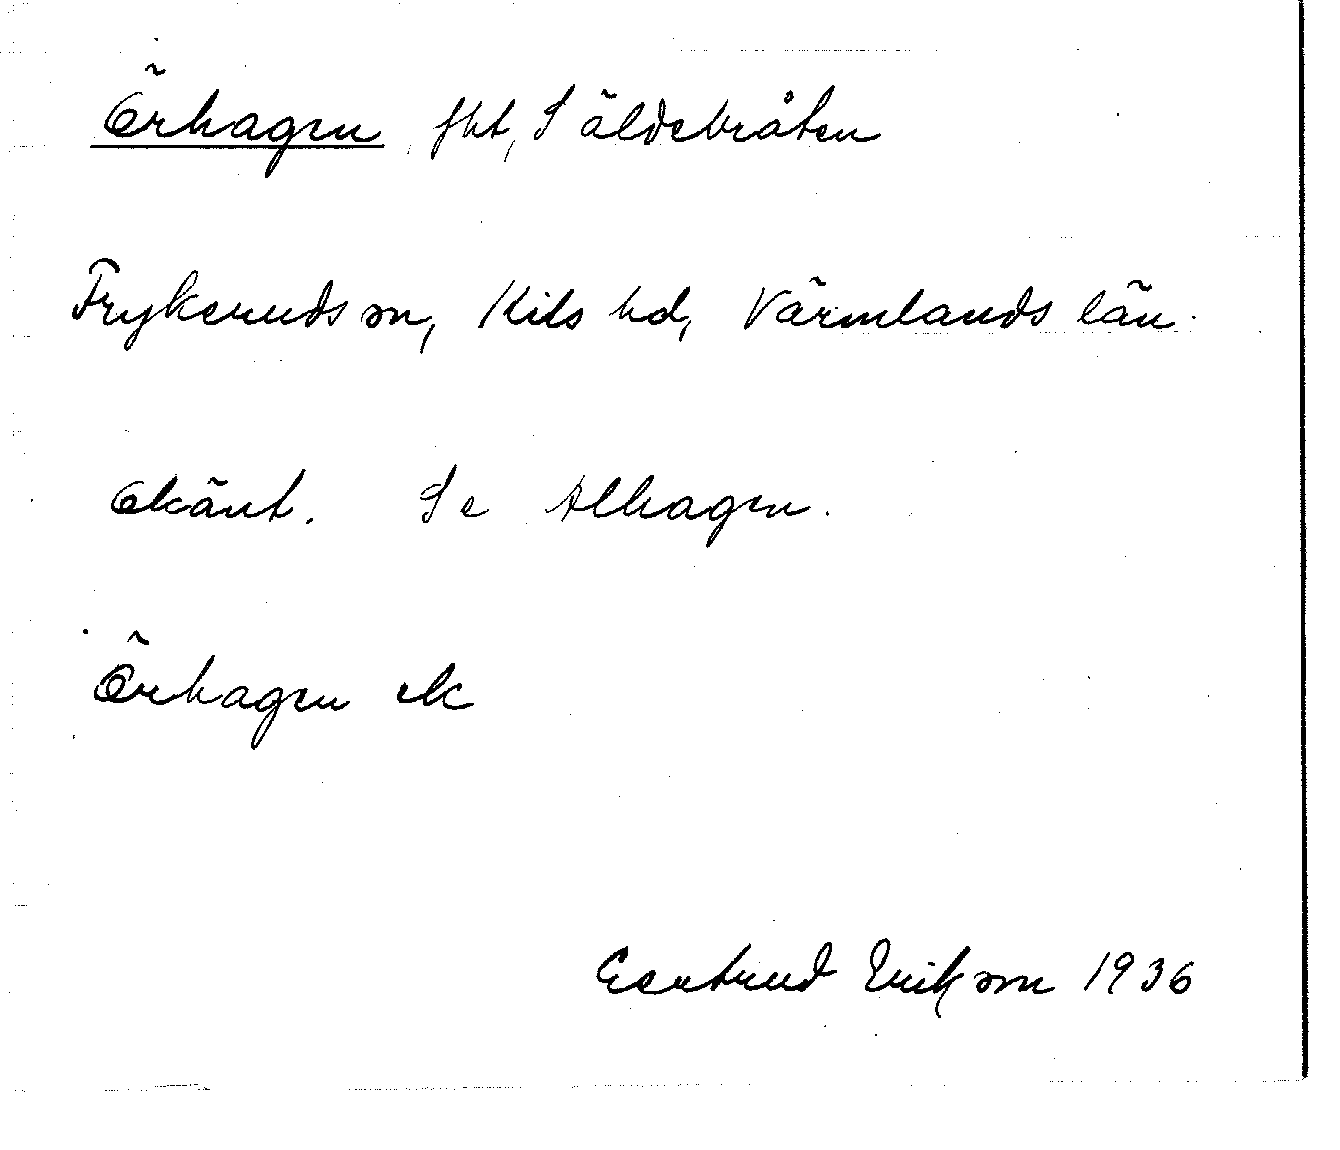 Örhagen fkt, Säldebråten
Frykeruds sn, Kils hd, Värmlands län.
Okänt. Se Alhagen.
Örhagen ek
Gertrud Erikson 1936